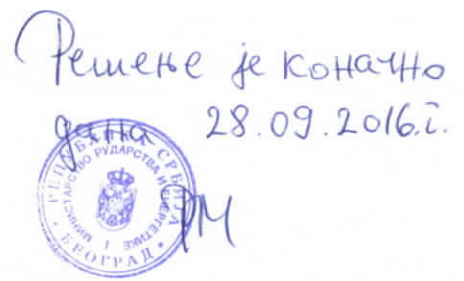 Решење је коначно
дана 28.09.2016.г.
РЕПУБЛИКА СРБИЈА
МИНИСТАРСТВО РУДАРСТВА И ЕНЕРГЕТИКЕ
I
БЕОГРАД
РМ